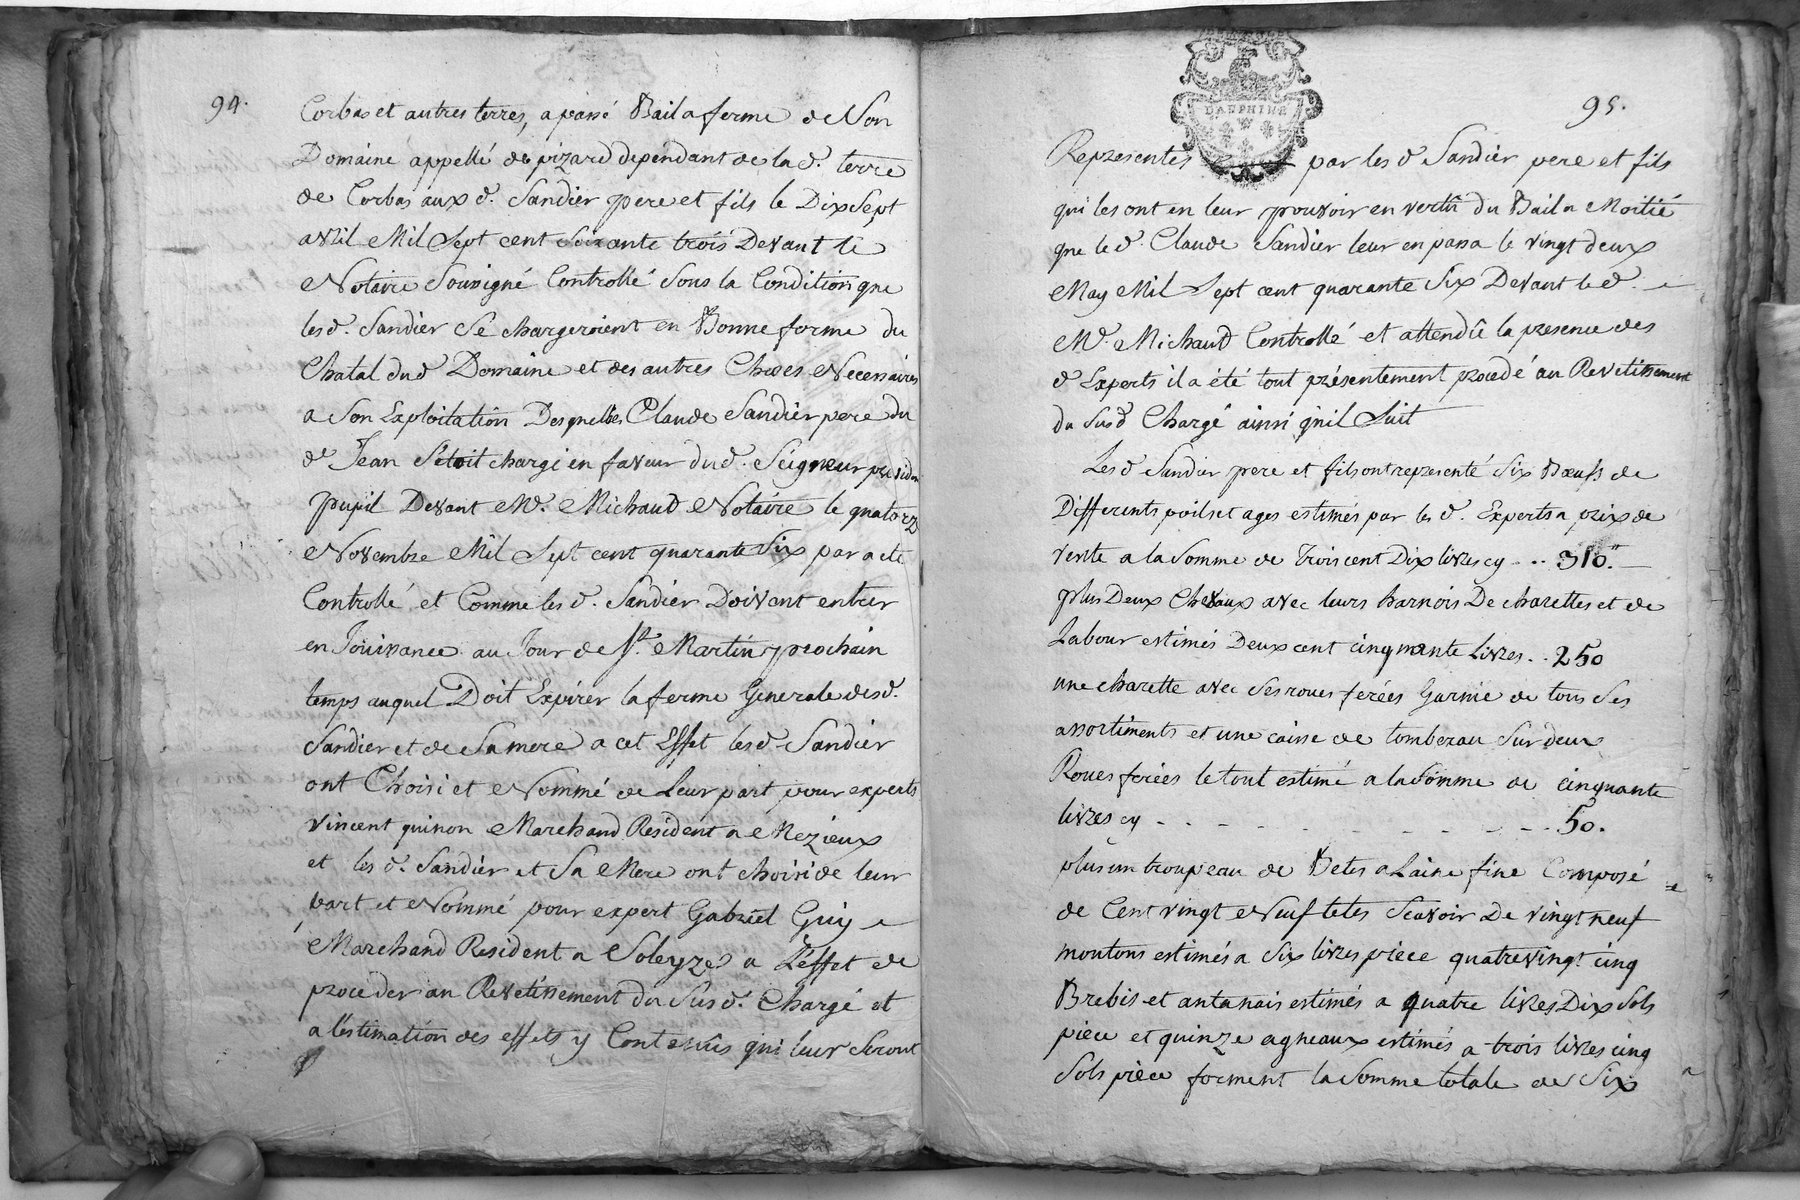 94.
Corbas et autres terres, a passé Bail a ferme de Son
Domaine appellé de pizard dependant de la d. terre
de Corbas aux d. Sandier pere et fils le Dix Sept
avril Mil Sept cent Soixante trois Devant le
Notaire Sousigné Controllé Sous la Condition que
les d. Sandier Se chargeroient en Bonne forme du
Chatal dud Domaine et des autres Choses Necessaires
a Son Exploitation Desquelles Claude Sandier pere du
d Jean S'étoit chargé en faveur du d. Seigneur president
pupil Devant Me. Michaud Notaire le quatorze
Novembre Mil Sept cent quarante Six par acte
Controllé et Comme les d. Sandier Doivent entrer
en Jouissance au Jour de St. Martin prochain
temps auquel Doit Expirer la ferme Generale des d.
Sandier et de Sa mere a cet Effet les d. Sandier
ont Choisi et Nommé de Leur part pour experts
vincent quinon Marchand Resident a Mezieux
et les d. Sandier et Sa Mere ont choisi de leur
part et Nommé pour expert Gabriel Guy
Marchand Resident a Soleyze a L'effet de
proceder au Revetissement du Sus d. Chargé et
a l'estimation des effets y Contenus qui leur Seront
DAUPHINE
95.
Representés par les d Sandier pere et fils
qui les ont en leur pouvoir en vertû du Bail a Moitié
que le d. Claude Sandier leur en passa le vingt deux
May Mil Sept cent quarante Six Devant le d.
Me. Michaud Controllé et attendû la presence des
d Experts il a été tout présentement procedé au Revetissement
du Susd Chargé ainsi qu'il Suit
Les d Sandier pere et fils ont representé Six Bœufs de
Differents poils et ages estimés par les d. Experts a prix de
vente a la Somme de trois cent Dix livres cy .. 310.
plus Deux Chevaux avec leurs harnois De charettes et de
Labour estimés Deux cent cinquante Livres .. 250
une charette avec Ses roues ferées Garnie de tous Ses
assortiments et une caisse de tombereau Sur deux
Roues ferées le tout estimé a la Somme de cinquante
livres cy - - - - - - - - - 50.
plus un troupeau de Betes a Laine fine Composé
de Cent vingt Neuf tetes Scavoir De vingt neuf
moutons estimés a Six livres piece quatre vingt cinq
Brebis et antanais estimés a quatre livres Dix Sols
piece et quinze agneaux estimés a trois livres cinq
Sols piece forment la Somme totale de Six